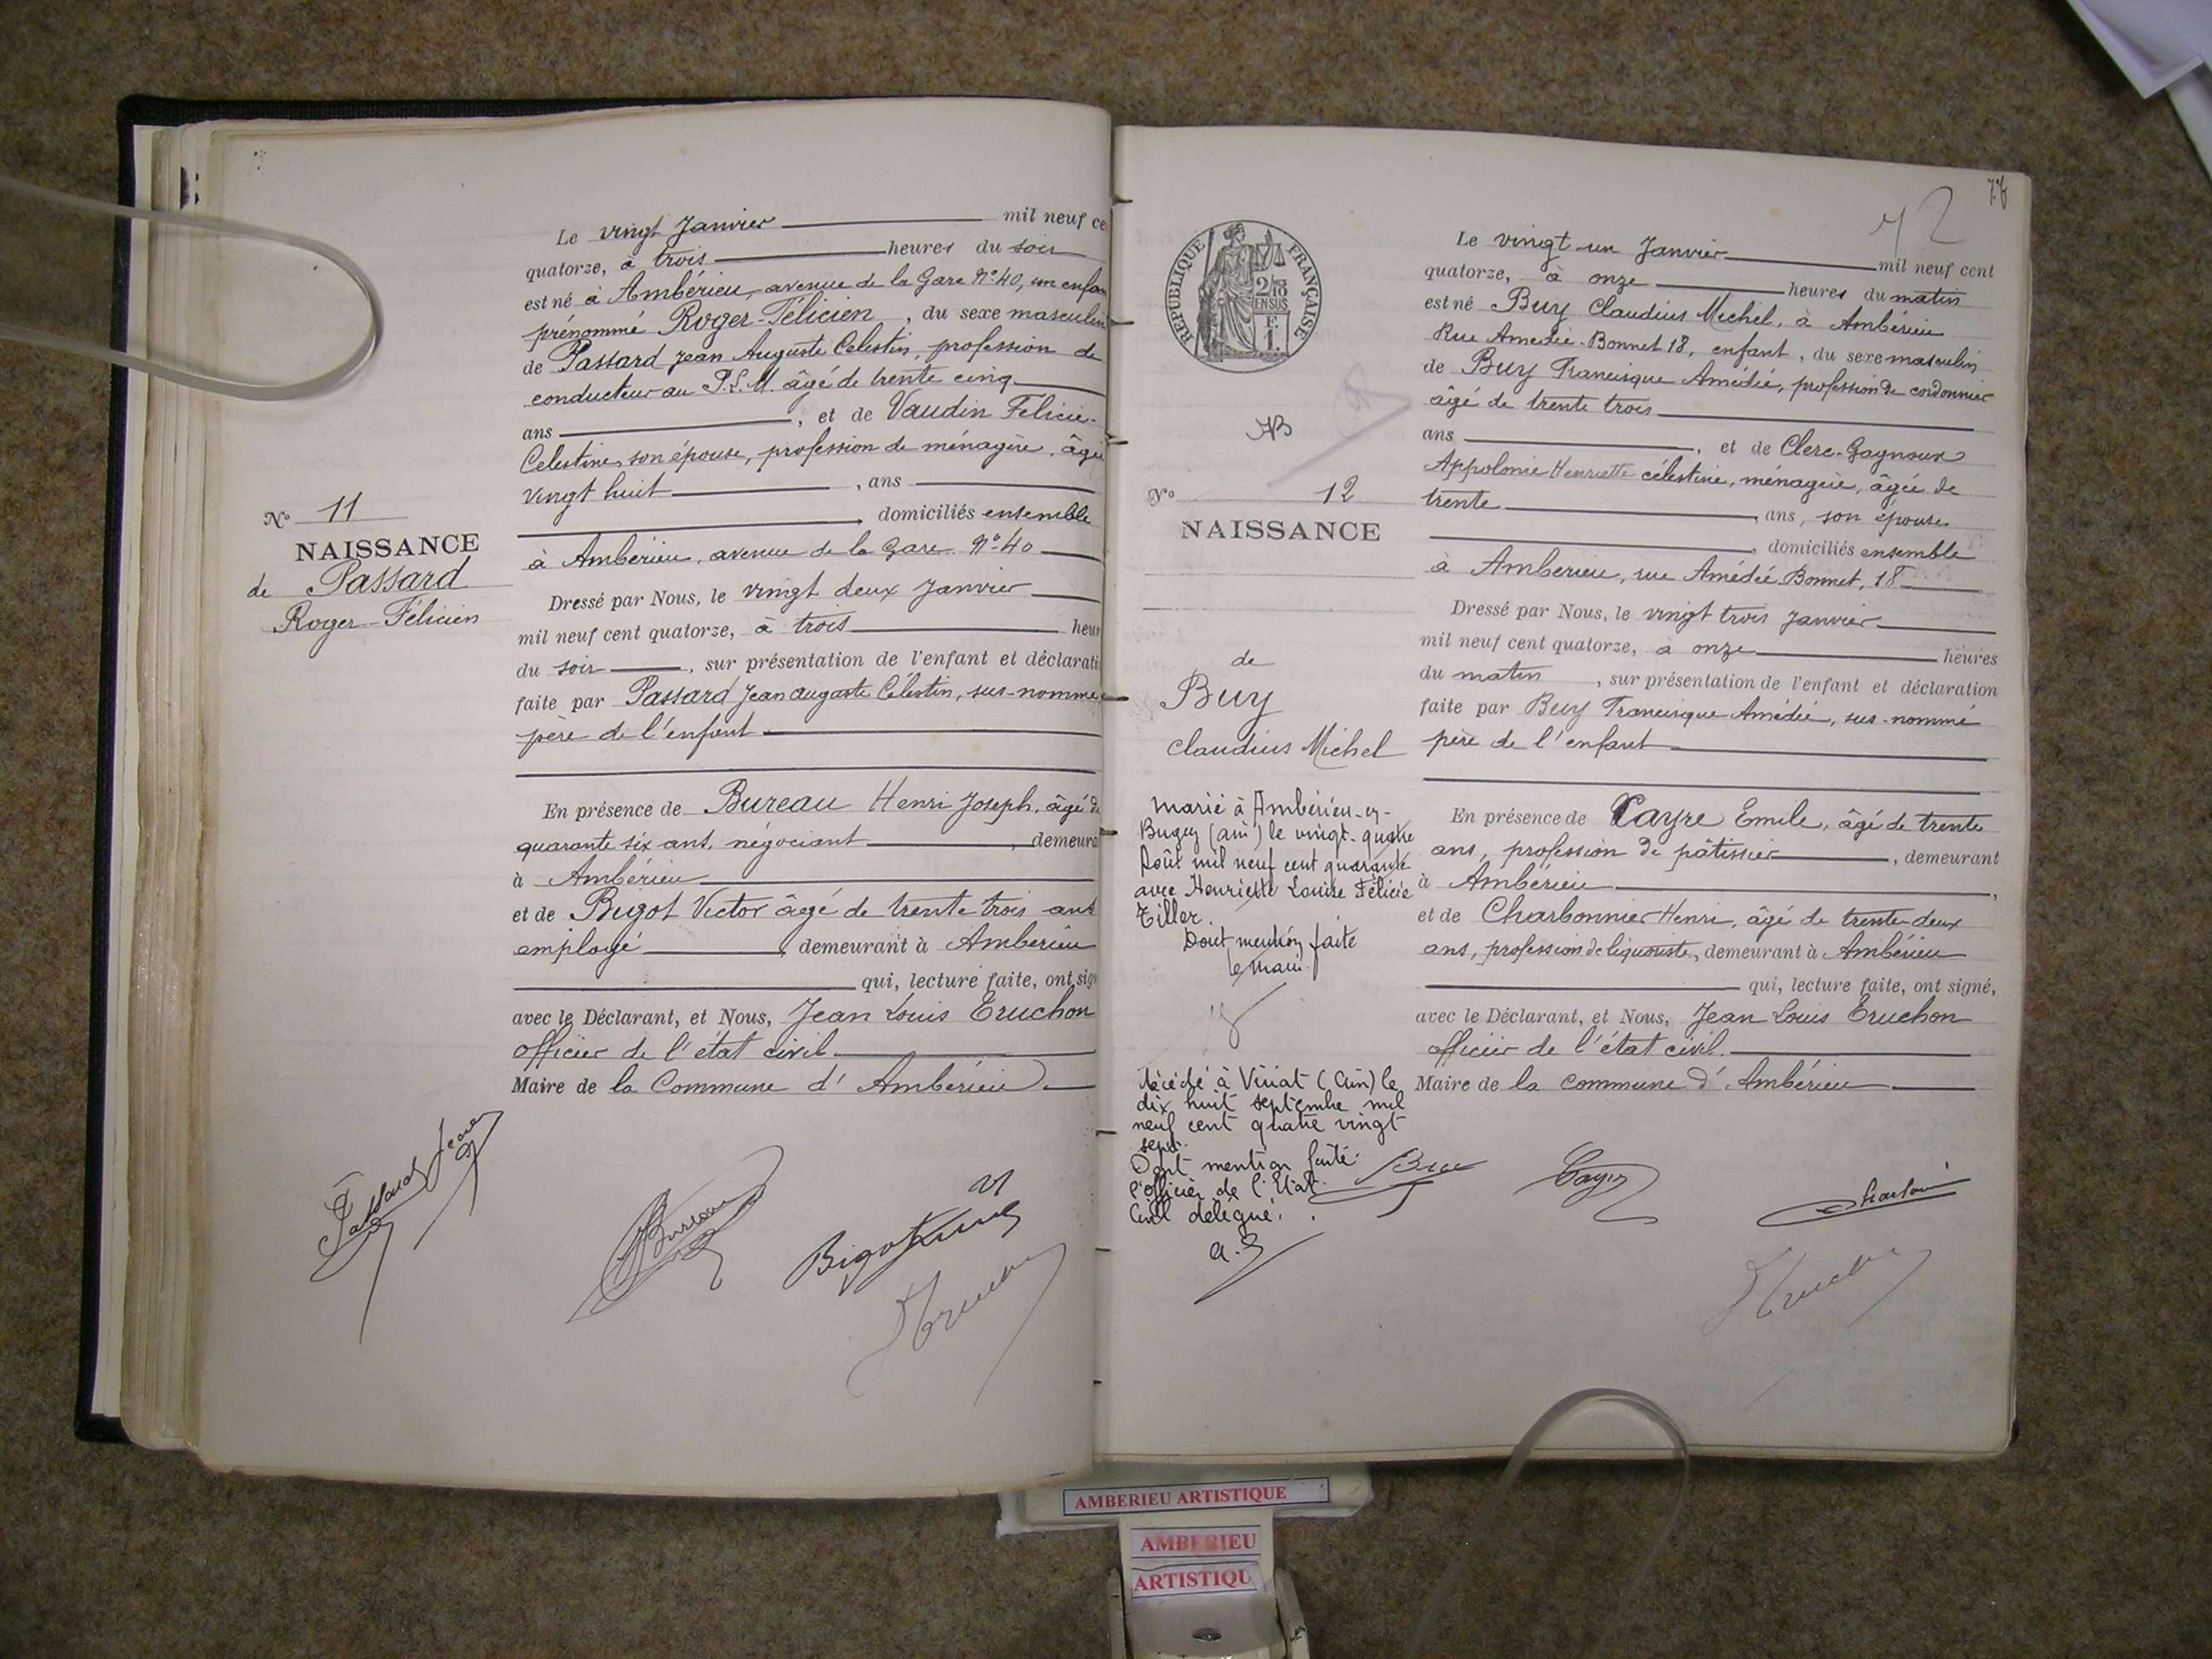 Le vingt Janvier mil neuf ce
quatorze, à trois heures du soir
est né à Ambérieu, avenue de la Gare N° 40, un enfan
prénommé Roger-Félicien, du sexe masculin
de Passard Jean Auguste Celestin, profession de
conducteur au P.L.M. âgé de trente cinq
ans, et de Vaudin Félicie-
Celestine, son épouse, profession de ménagère, âgée
vingt huit, ans
domiciliés ensemble
à Ambérieu, avenue de la Gare N° 40
Dressé par Nous, le vingt deux Janvier
mil neuf cent quatorze, à trois heur
du soir, sur présentation de l'enfant et déclarati
faite par Passard Jean Auguste Célestin, sus-nommé
père de l'enfant
En présence de Bureau Henri Joseph, âgé de
quarante six ans, négociant, demeura
à Ambérieu
et de Bigot Victor âgé de trente trois ans
employé, demeurant à Ambérieu
qui, lecture faite, ont sig
avec le Déclarant, et Nous, Jean Louis Eruchon
officier de l'état civil
Maire de la Commune d'Ambérieu
N° 11
NAISSANCE
de Passard
Roger-Félicien
Passard Jean
Bureau
Bigot
RÉPUBLIQUE FRANÇAISE
2/10
EN SUS
F.
1.
N° 12
NAISSANCE
de
Buy
Claudius Michel
marié à Ambérieu-en-
Bugey (ain) le vingt-quatre
Août mil neuf cent quarante
avec Henriette Louise Félicie
Tiller.
Dont mention faite
le maire.
décédé à Viriat (Ain) le
dix huit septembre mil
neuf cent quatre vingt
sept.
Dont mention faite
l'officier de l'Etat
Civil délégué.
72
Le vingt-un Janvier mil neuf cent
quatorze, à onze heures du matin
est né Buy Claudius Michel, à Ambérieu
Rue Amédée-Bonnet 18, enfant, du sexe masculin
de Buy Francisque Amédée, profession de cordonnier
âgé de trente trois
ans, et de Clerc-Gagnoux
Appolonie Henriette célestine, ménagère, âgée de
trente, ans, son épouse
domiciliés ensemble
à Ambérieu, rue Amédée Bonnet, 18
Dressé par Nous, le vingt trois Janvier
mil neuf cent quatorze, à onze heures
du matin, sur présentation de l'enfant et déclaration
faite par Buy Francisque Amédée, sus-nommé
père de l'enfant
En présence de Cayre Emile, âgé de trente
ans, profession de pâtissier, demeurant
à Ambérieu,
et de Charbonnier Henri, âgé de trente-deux
ans, profession de liquoriste, demeurant à Ambérieu
qui, lecture faite, ont signé,
avec le Déclarant, et Nous, Jean Louis Eruchon
officier de l'état civil.
Maire de la commune d'Ambérieu
Buy
AMBERIEU ARTISTIQUE
AMBERIEU
ARTISTIQU